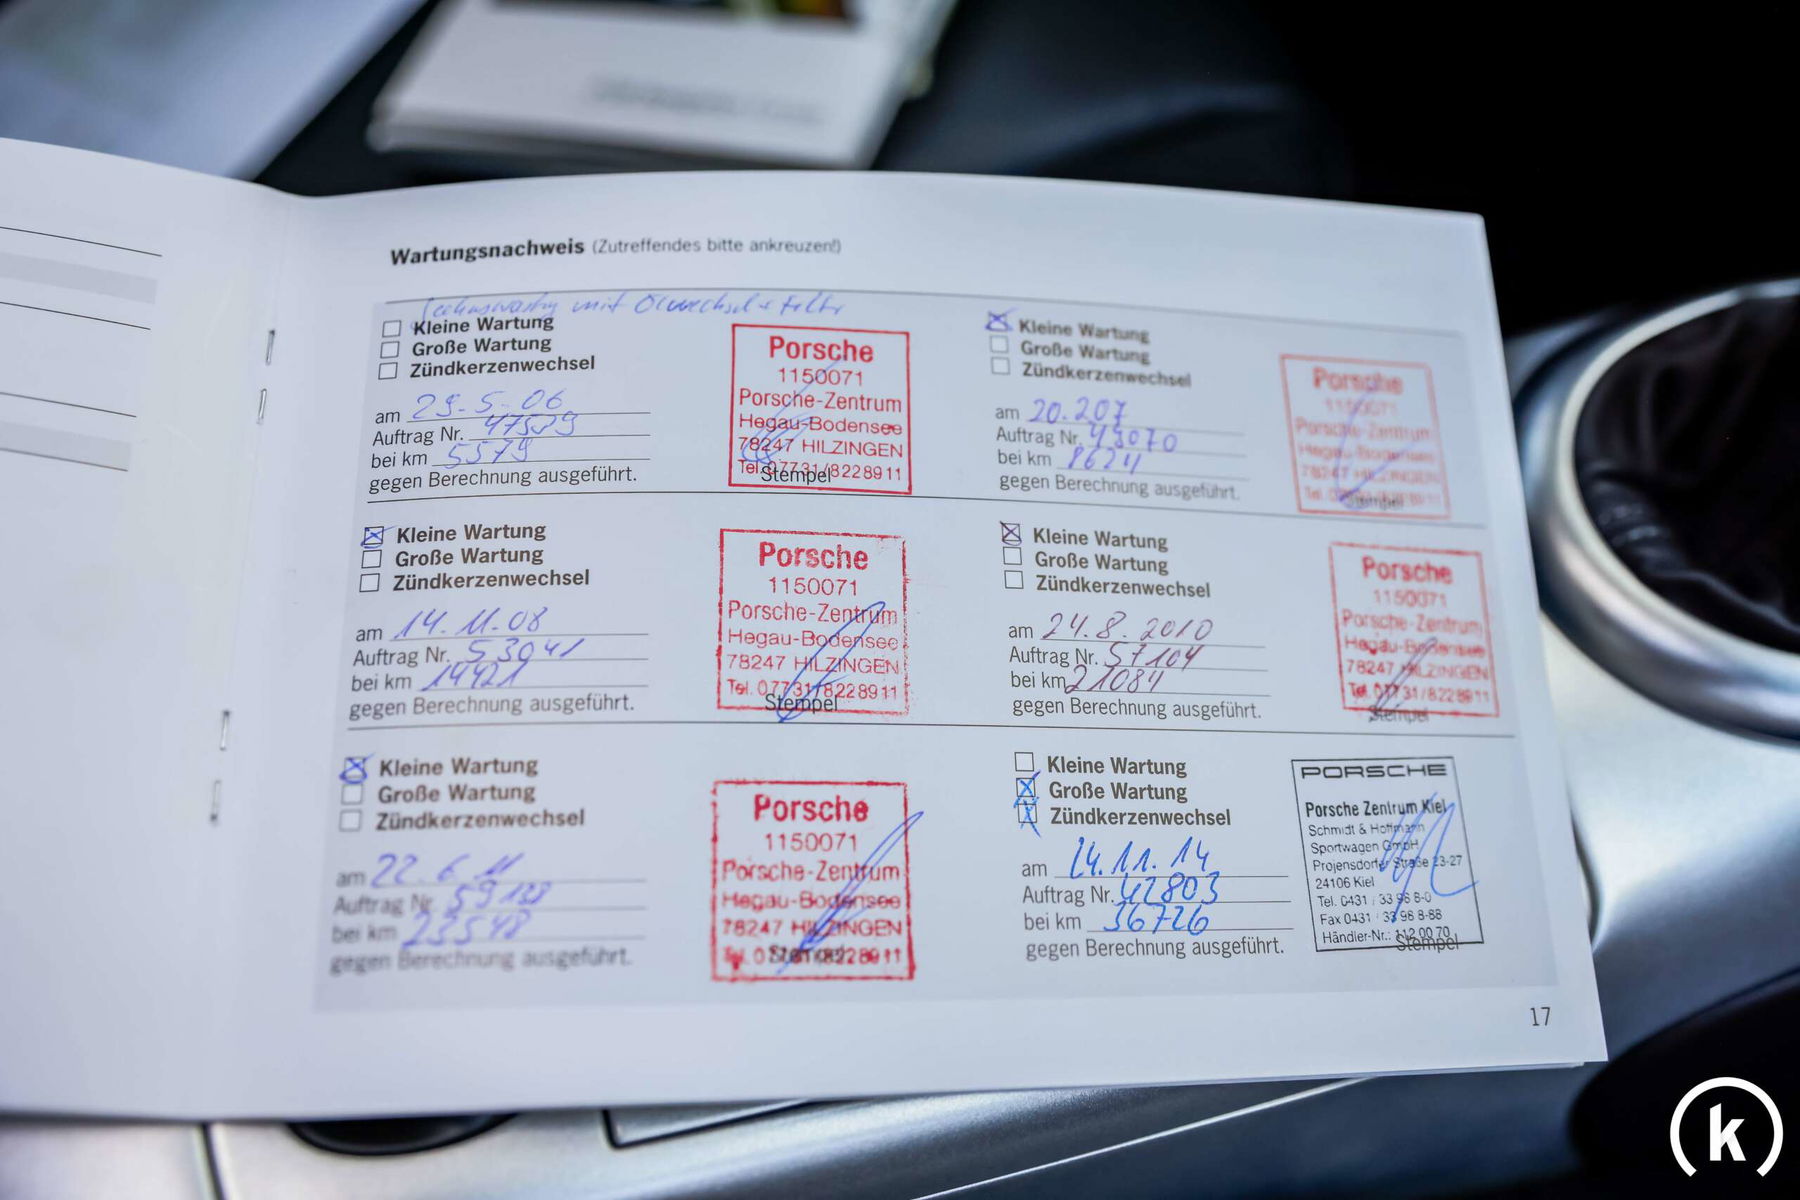 Wartungsnachweis (Zutreffendes bitte ankreuzen!)
mit Ölwechsel + Filter
Kleine Wartung
Große Wartung
Zündkerzenwechsel
am 29.5.06
Auftrag Nr. 47589
bei km 5579
gegen Berechnung ausgeführt.
Porsche
1150071
Porsche-Zentrum
Hegau-Bodensee
78247 HILZINGEN
Tel. 07731/8228911
Stempel
Kleine Wartung
Große Wartung
Zündkerzenwechsel
am 20.207
Auftrag Nr. 49070
bei km 8624
gegen Berechnung ausgeführt.
Porsche
1150071
Porsche-Zentrum
Hegau-Bodensee
78247 HILZINGEN
Stempel
Kleine Wartung
Große Wartung
Zündkerzenwechsel
am 14.11.08
Auftrag Nr. 53041
bei km 14421
gegen Berechnung ausgeführt.
Porsche
1150071
Porsche-Zentrum
Hegau-Bodensee
78247 HILZINGEN
Tel. 07731/8228911
Stempel
Kleine Wartung
Große Wartung
Zündkerzenwechsel
am 24.8.2010
Auftrag Nr. 57104
bei km 21084
gegen Berechnung ausgeführt.
Porsche
1150071
Porsche-Zentrum
Hegau-Bodensee
78247 HILZINGEN
Tel. 07731/8228911
Stempel
Kleine Wartung
Große Wartung
Zündkerzenwechsel
am 22.6.11
Auftrag Nr.
bei km 23548
gegen Berechnung ausgeführt.
Porsche
1150071
Porsche-Zentrum
Hegau-Bodensee
78247 HILZINGEN
Tel. 07731/8228911
Stempel
Kleine Wartung
Große Wartung
Zündkerzenwechsel
am 14.11.14
Auftrag Nr. 42803
bei km 36726
gegen Berechnung ausgeführt.
PORSCHE
Porsche Zentrum Kiel
Schmidt & Hoffmann
Sportwagen GmbH
Projensdorfer Straße 23-27
24106 Kiel
Tel. 0431 / 33 96 8-0
Fax 0431 / 33 96 8-88
Händler-Nr.: 112 00 70
Stempel
17
k